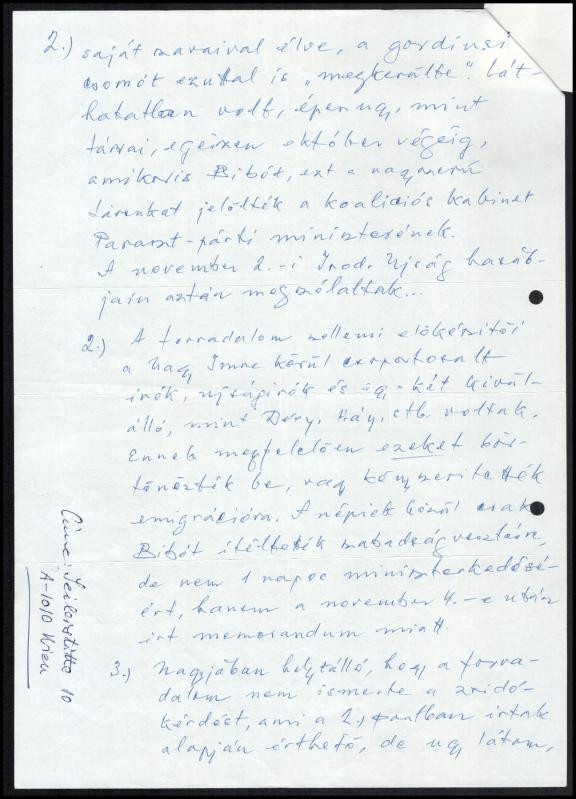 2.) saját szavaival élve, a gordiusi
csomót ezuttal is „megkerülte". Lát-
hatatlan volt, épen ugy, mint
társai, egészen október végéig,
amikoris Bibót, ezt a nagyszerü
társunkat jelölték a koaliciós kabinet
Paraszt-párti miniszterének.
A november 2.-i Irod. Ujság hasáb-
jain aztán megszólaltak...
2.) A forradalom szellemi előkészitői
a Nagy Imre körül csoportosult
irók, ujságirók és egy-két kivül-
álló, mint Déry, Háy, stb. voltak.
Ennek megfelelően ezeket bör-
tönözték be, vagy kényszeritették
emigrációra. A népiek közül csak
Bibót itélték szabadságvesztésre,
de nem 1 napos miniszterkedésé-
ért, hanem a november 4.-e után
irt memorandum miatt.
3.) Nagyjában helytálló, hogy a forra-
dalom nem ismerte a zsidó-
kérdést, ami a 2., pontban irtak
alapján érthető, de ugy látom,
Cime: Seilerstätte 10
A-1010 Wien